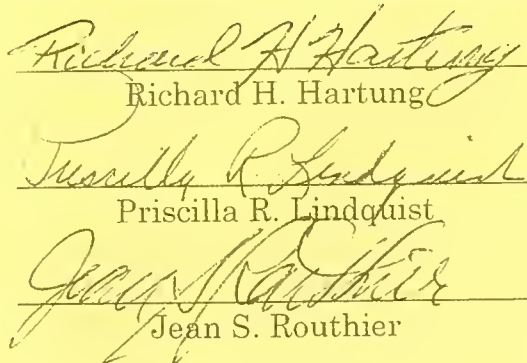 Richard H Hartung
Richard H. Hartung
Priscilla R Lindquist
Priscilla R. Lindquist
Jean S Routhier
Jean S. Routhier